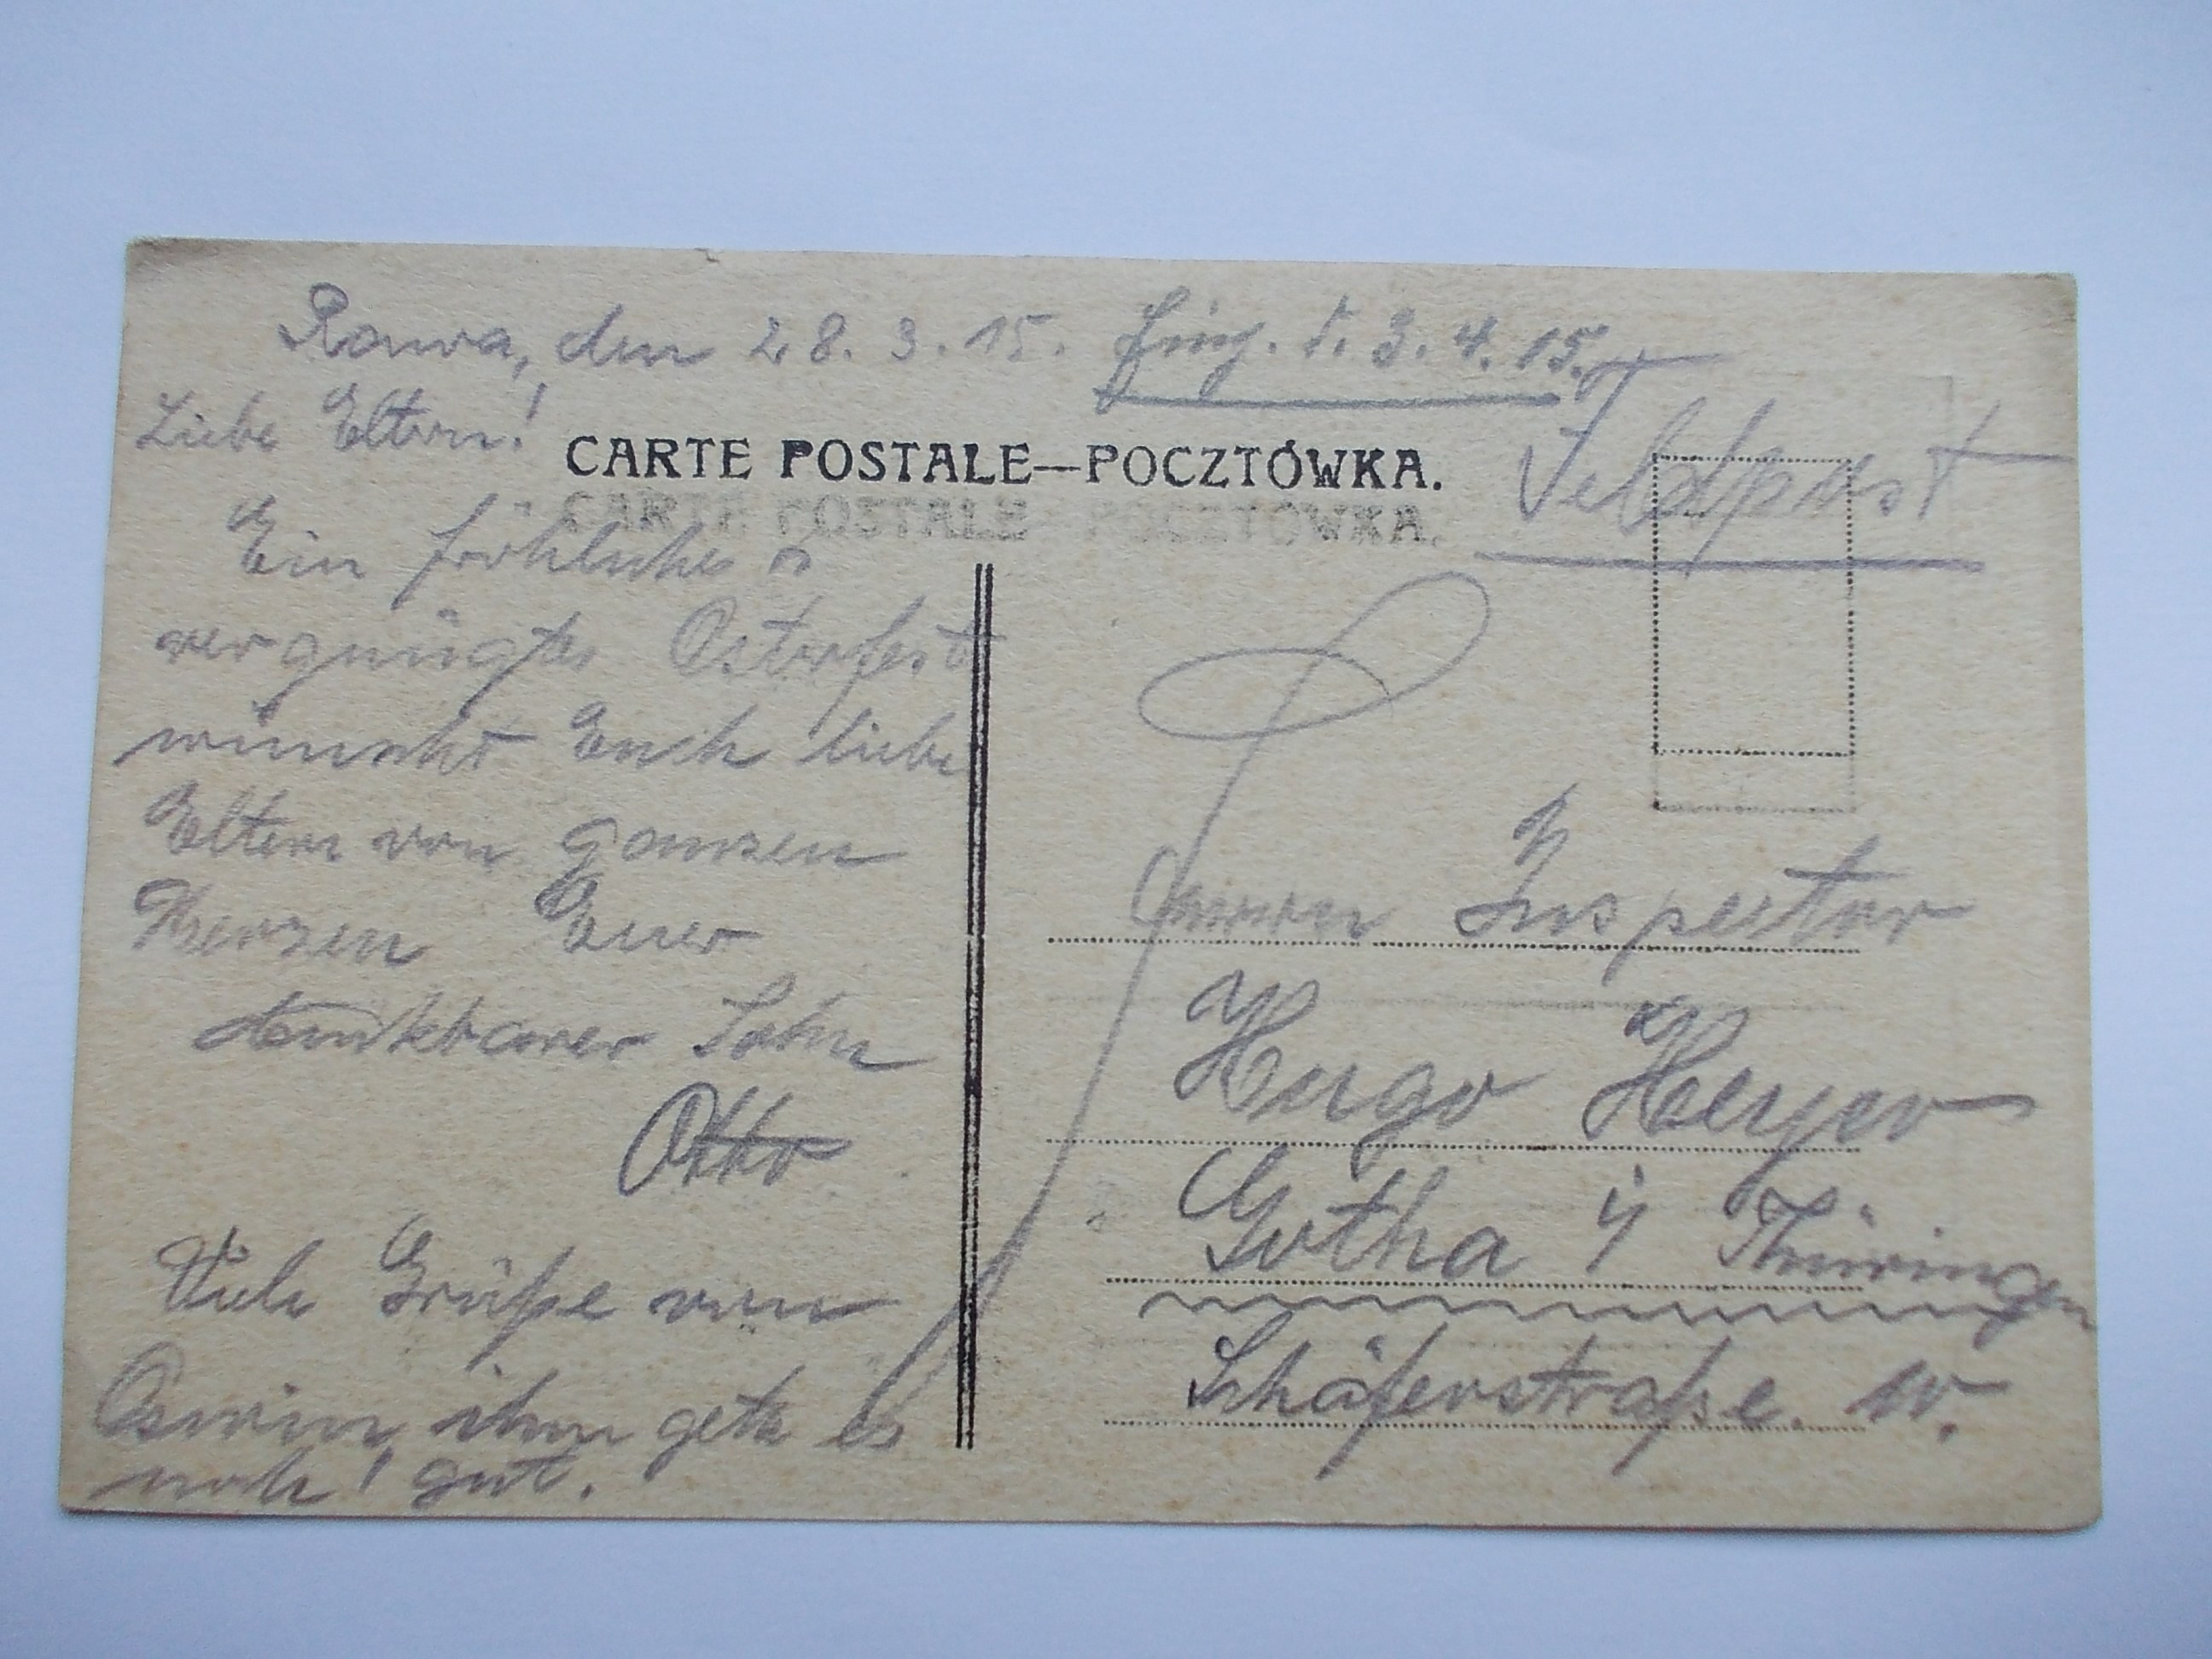 Rawa, den 28. 3. 15. Eing. d. 3. 4. 15.
Liebe Eltern!
CARTE POSTALE—POCZTÓWKA.
CARTE POSTALE POCZTÓWKA.
Feldpost
Ein fröhliches
vergnügtes Osterfest
wünscht Euch liebe
Eltern von ganzen
Herzen Euer
dankbarer Sohn
Otto
Viele Grüße von
Oswin, ihm geth es
noch! gut.
Inspector
Hugo Heyer
Gotha i/ Thüringen
Schäferstraße. 10.